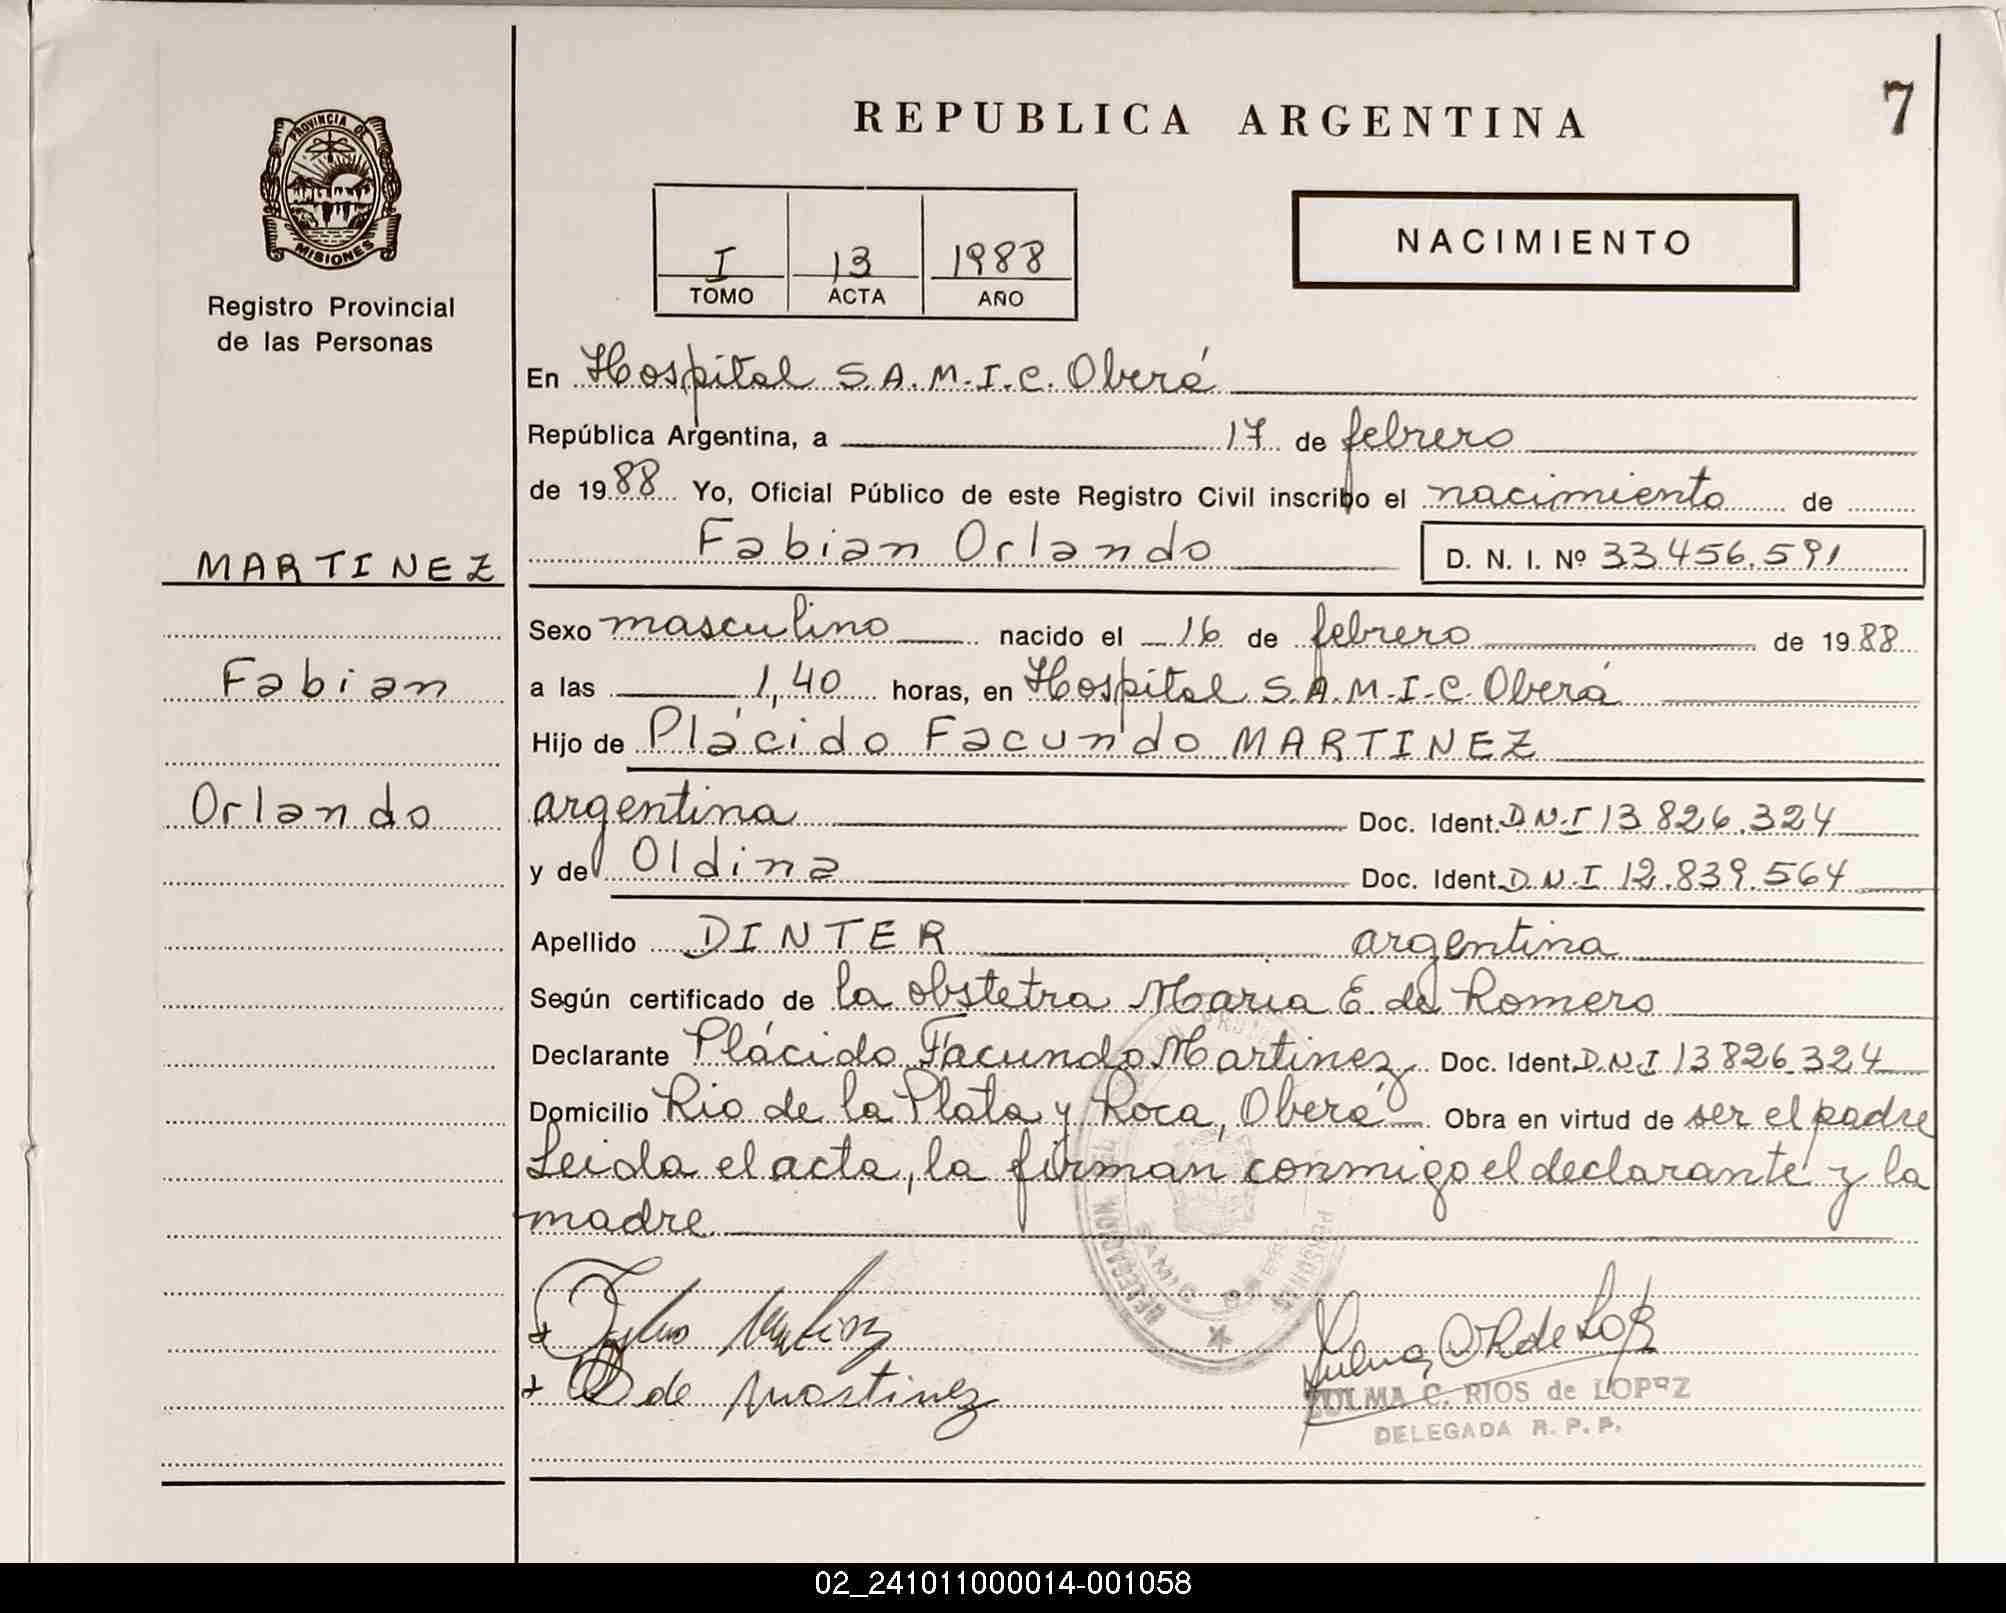 REPUBLICA ARGENTINA
7
PROVINCIA DE
MISIONES
Registro Provincial
de las Personas
I 13 1988
TOMO ACTA AÑO
NACIMIENTO
En Hospital S.A.M.I.C. Oberá
República Argentina, a 17 de febrero
de 1988 Yo, Oficial Público de este Registro Civil inscribo el nacimiento de
Fabian Orlando D. N. I. Nº 33.456.591
MARTINEZ
Fabian
Orlando
Sexo masculino nacido el 16 de febrero de 1988
a las 1,40 horas, en Hospital S.A.M.I.C. Oberá
Hijo de Plácido Facundo MARTINEZ
argentina Doc. Ident. D.N.I 13.826.324
y de Oldina Doc. Ident. D.N.I 12.839.564
Apellido DINTER argentina
Según certificado de la obstetra Maria E. de Romero
Declarante Plácido Facundo Martinez Doc. Ident. D.N.I 13.826.324
Domicilio Rio de la Plata y Roca, Oberá Obra en virtud de ser el padre
Leida el acta, la firman conmigo el declarante y la
madre
DELEGACION
SAMIC
de Martinez
ZULMA C. RIOS de LOPEZ
DELEGADA R. P. P.
02_241011000014-001058